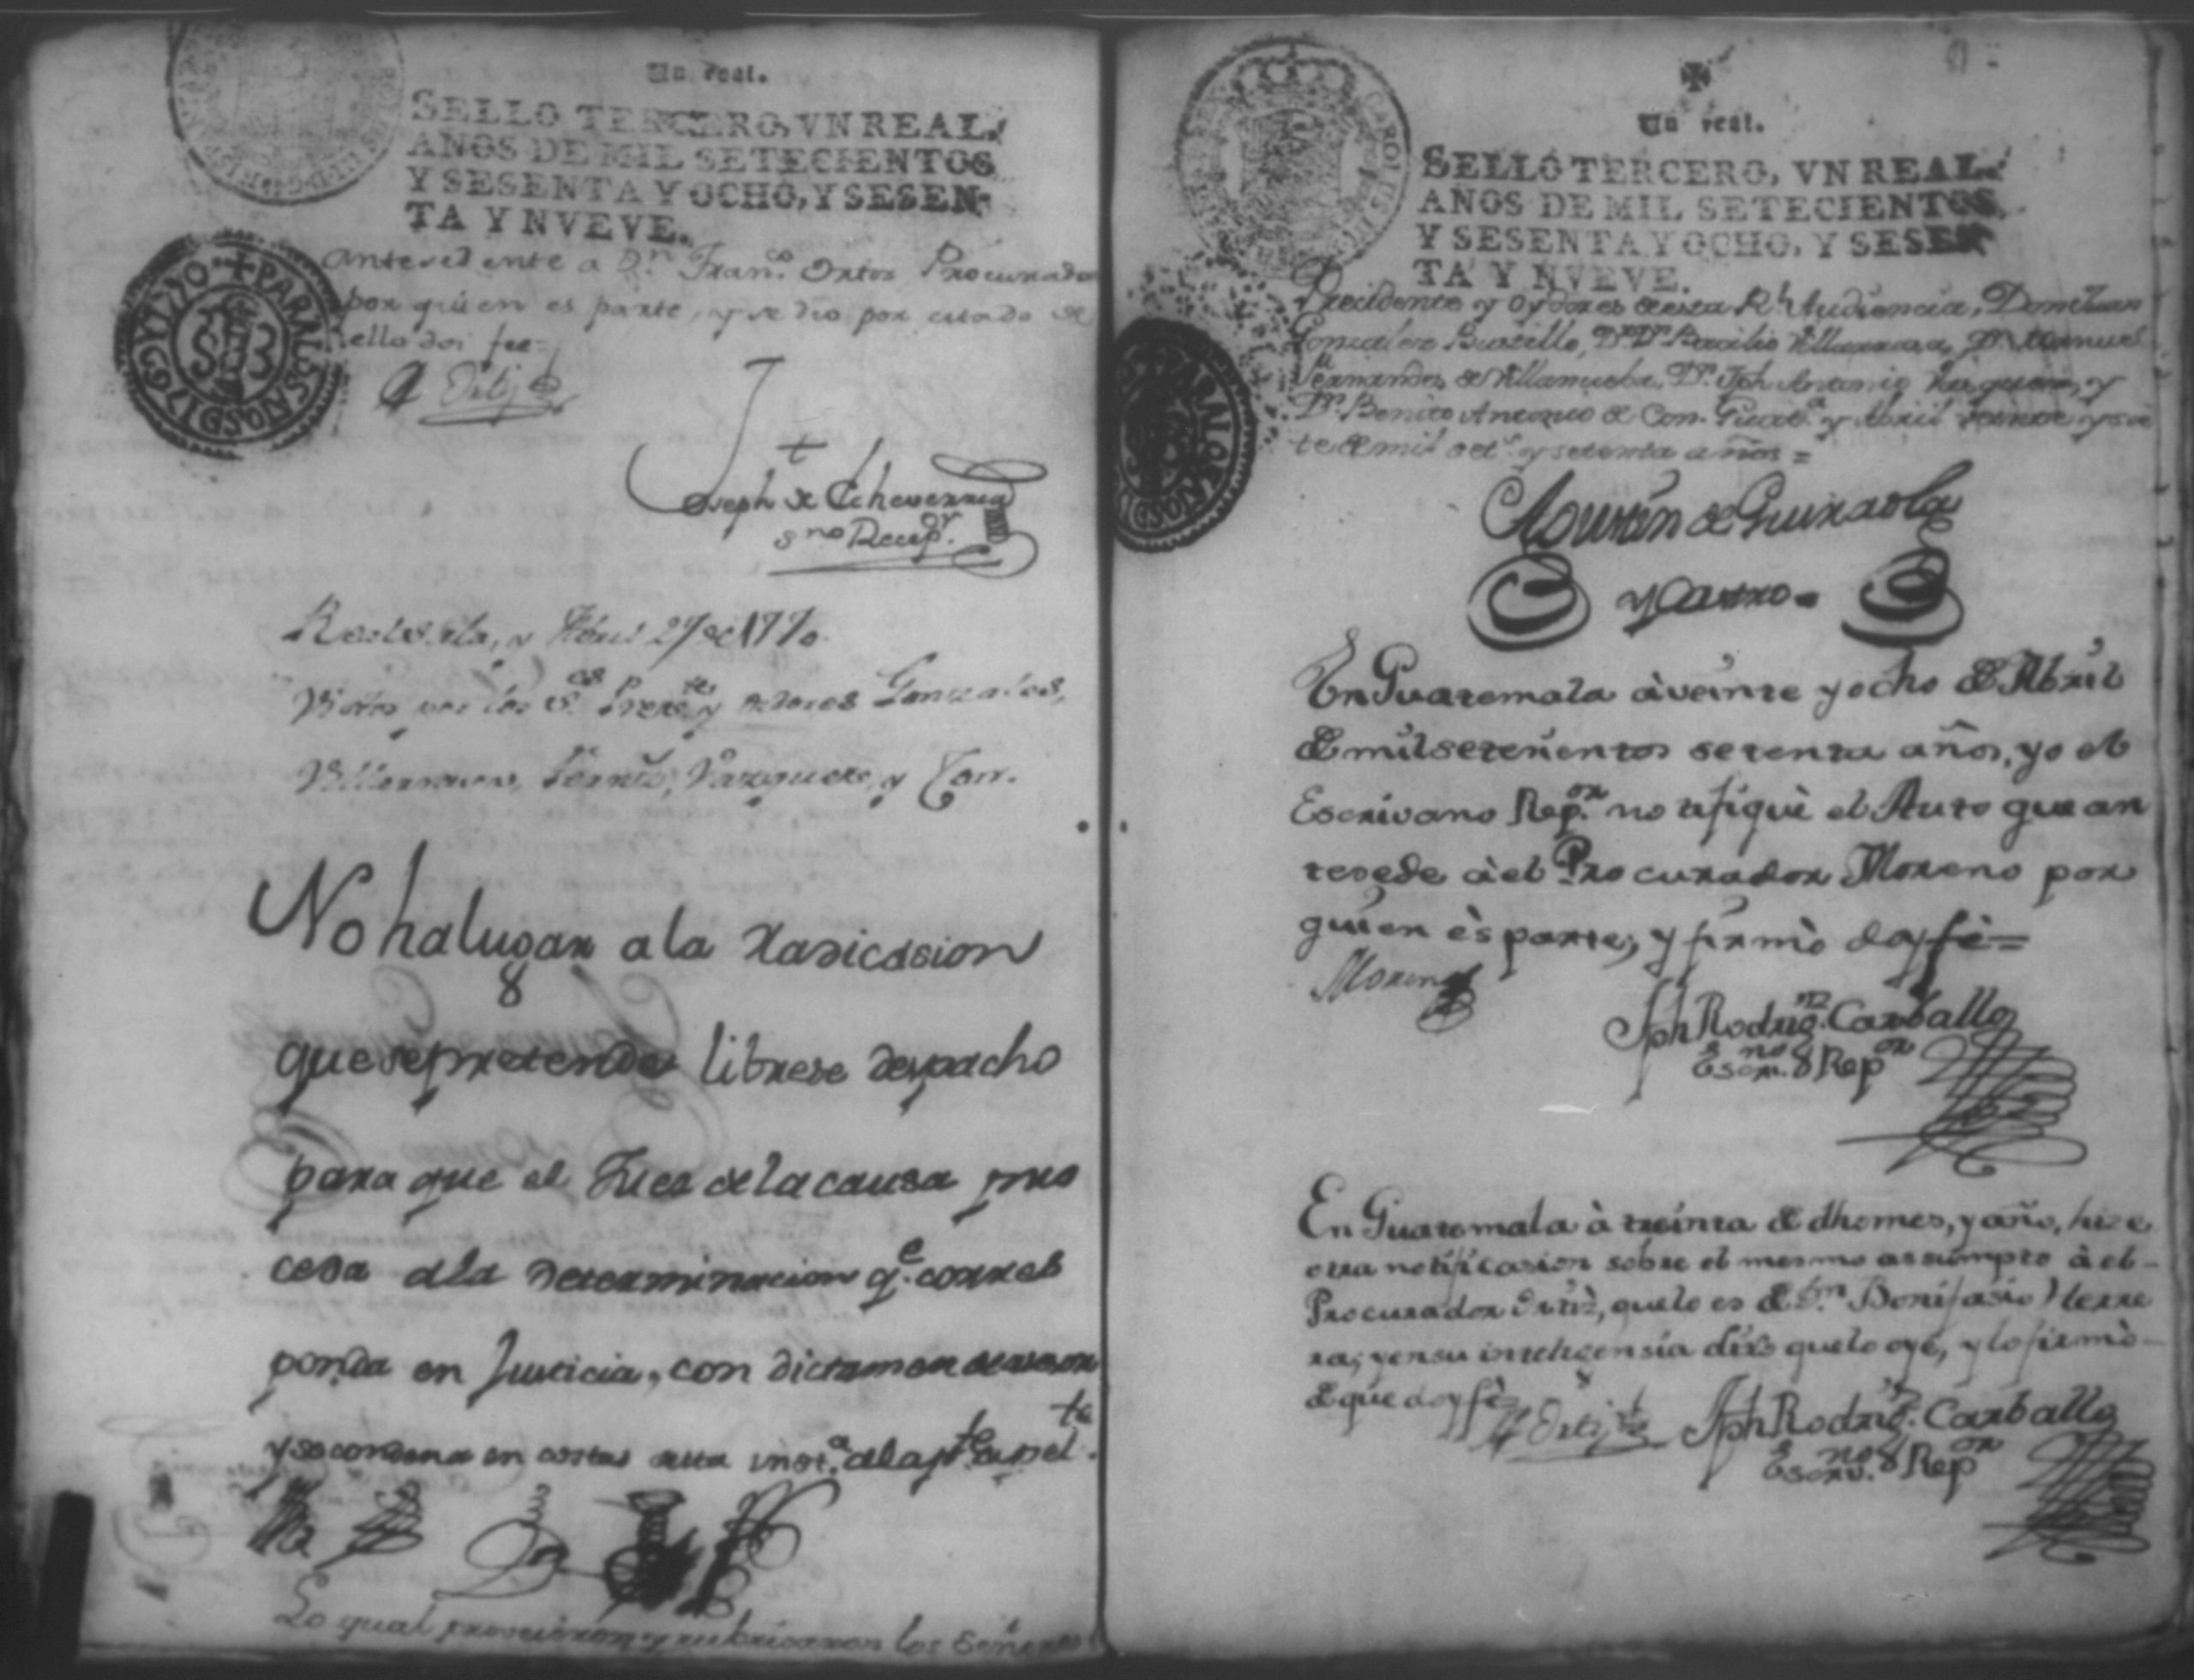 Un real.
SELLO TERCERO, VN REAL,
AÑOS DE MIL SETECIENTOS
Y SESENTA Y OCHO, Y SESEN-
TA Y NVEVE.
antesedente a Dn. Franco. Ortos Procurador
por quien es parte, y se dio por citado de
ello doi fee=
Ortiz
Joseph de Echeverria
sno Recepor.
PARA LOS AÑOS D 1769 Y 1770
Real Sala, y Abril 27 de 1770.
Vistos por los Ses. Preste. y oidores Gonzales,
Villarrasa, Fernz, Vazquez, y Con.
No ha lugar a la radicasion
que se pretende librese despacho
para que el Juez de la causa pro
ceda a la determinacion qe. corres
ponda en Justicia, con dictamen de asesor
y se condena en costas de esta insta. a la pte. apelte.
Lo qual proveieron y rubricaron los Señores
Un real.
SELLO TERCERO, VN REAL
AÑOS DE MIL SETECIENTOS
Y SESENTA Y OCHO, Y SESEN
TA Y NVEVE.
CAROLUS III
Precidente y Oydores de esta Rl. Audiencia, Don Juan
Gonzalez Bustillo, Dn. Basilio Villarrasa, Dn. Manuel
Fernandes de Villanueba, Dn. Jph Antonio Vasques, y
Dn. Benito Antonio de Con. Guata. y Abril veinte y sie
te de mil set. y setenta años=
Agustin de Guiraola
y Castro
En Guatemala à veinte y ocho de Abril
de mil setecientos setenta años, yo el
Escrivano Repor. notifiquè el Auto que an
tesede à el Procurador Moreno por
quien ès parte, y firmò doy fè=
Moreno
Jph Rodrigz. Carballo
Escrno. de Repor
En Guatemala à treinta de dho mes, y año, hize
otra notificasion sobre el mesmo assumpto à el
Procurador Ortiz, que lo es de Dn. Bonifasio Herre
ra; y en su inteligensia dixo que lo oye, y lo firmò
de que doy fè
Ortiz
Jph Rodrigz. Carballo
Escrivno. de Repor